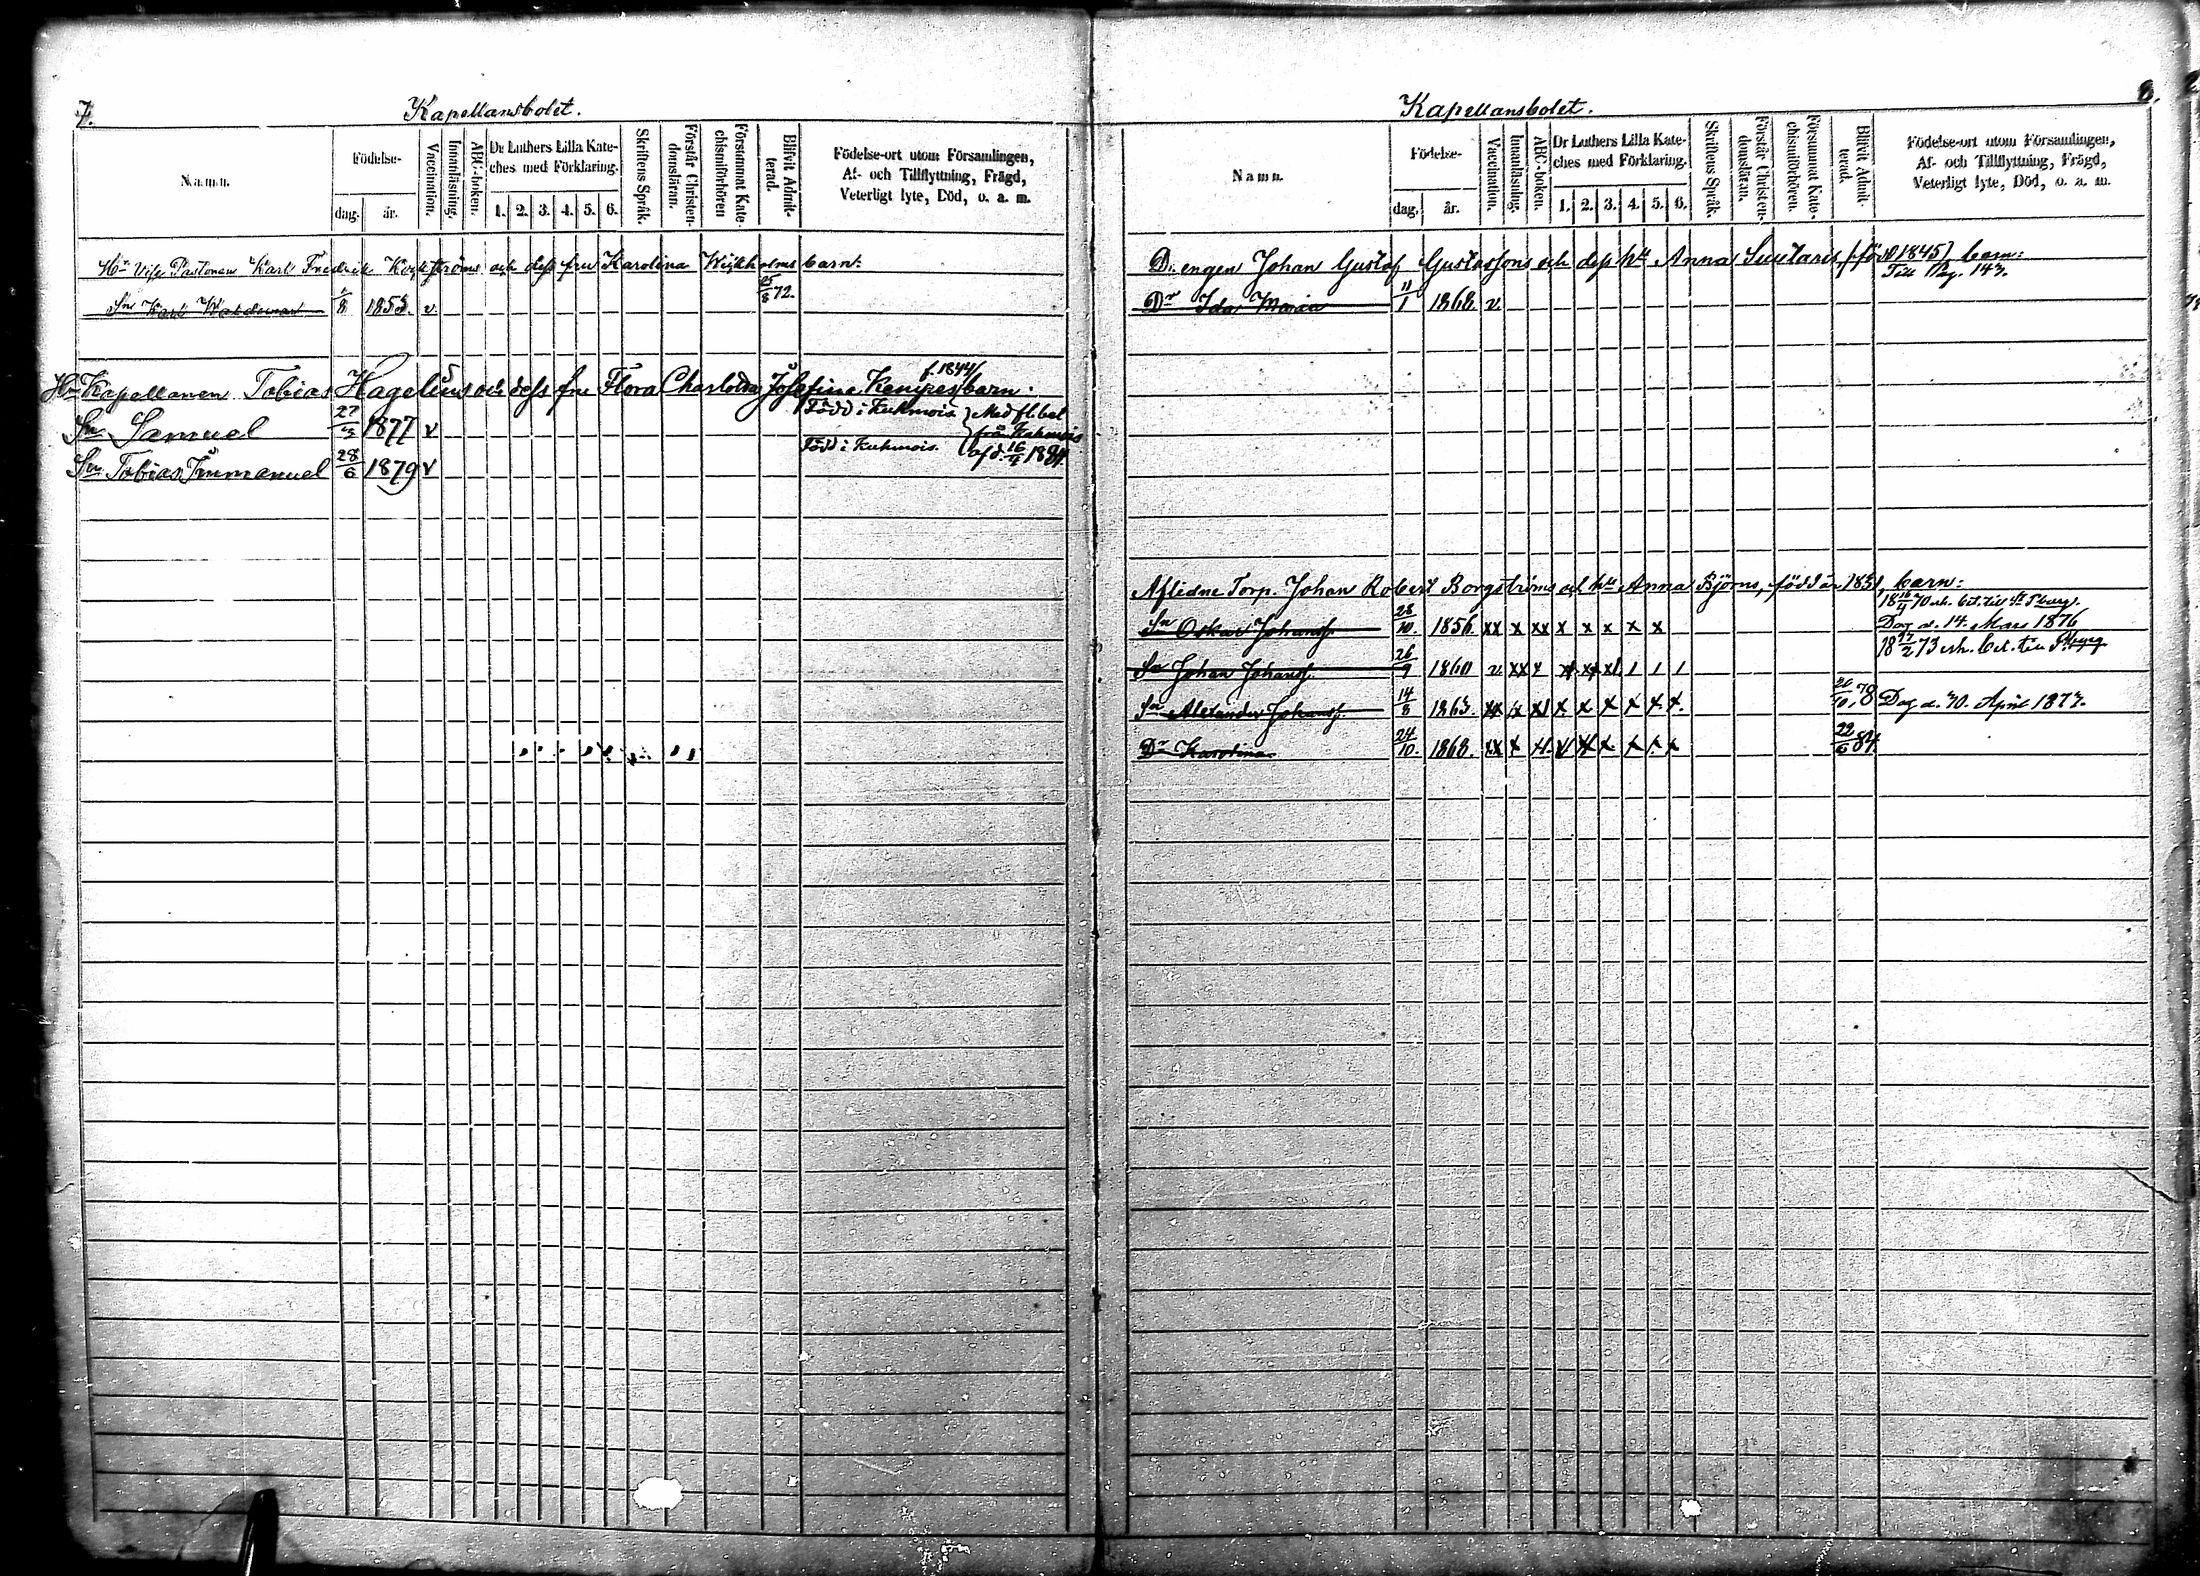 7.
Kapellansbolet.
Namn.
Födelse-
dag. år.
Vaccination.
Innanläsning.
ABC-boken.
Dr Luthers Lilla Kate-
ches med Förklaring.
1. 2. 3. 4. 5. 6.
Skriftens Språk.
Förstår Christen-
domsläran.
Försummat Kate-
chismiförhören
Blifvit Admit-
terad.
Födelse-ort utom Församlingen,
Af- och Tillflyttning, Frägd,
Veterligt lyte, Död, o. a. m.
Hr Vise Pastoren Karl Fredrik och dess fru Karolina barn:
Sn Karl Waldemar 8 1853. v. 8 72.
f. 1844
Hr Kapellanen Tobias Hagelius och dess fru Flora Charlotta Josefina barn.
Sn Samuel 27 1877 v Född i Med flibet
från
Sn Tobias Immanuel 28/6 1879 v Född i af d. 16/4 1884.
8.
Kapellansbolet.
Namn.
Födelse-
dag. år.
Vaccination.
Innanläsning.
ABC-boken.
Dr Luthers Lilla Kate-
ches med Förklaring.
1. 2. 3. 4. 5. 6.
Skriftens Språk.
Förstår Christen-
domsläran.
Försummat Kate-
chismiförhören.
Blifvit Admit-
terad.
Födelse-ort utom Församlingen,
Af- och Tillflyttning, Frägd,
Veterligt lyte, Död, o. a. m.
Drengen Johan Gustaf Gustafssons och dess hu Anna född 1845 barn:
Till pag. 143.
Dr Ida Maria 11/1 1868. v.
Aflidne Torp. Johan Robert Borgströms och hu Anna Björns, född år barn:
18 16/4 70 erh. bet. till St Pburg.
Sn Oskar Johanss. 28/10. 1856. xx x xx x x x x x Dog d. 14. Mars 1876
18 17/2 73 erh. bet. till Pburg
Sn Johan Johanss. 26/9 1860 v xx x
Sn Alexander Johanss. 14/8 1863. 26/10, 78 Dog d. 30. April 1877.
Dr Karolina 24/10. 1868. 22/6 84